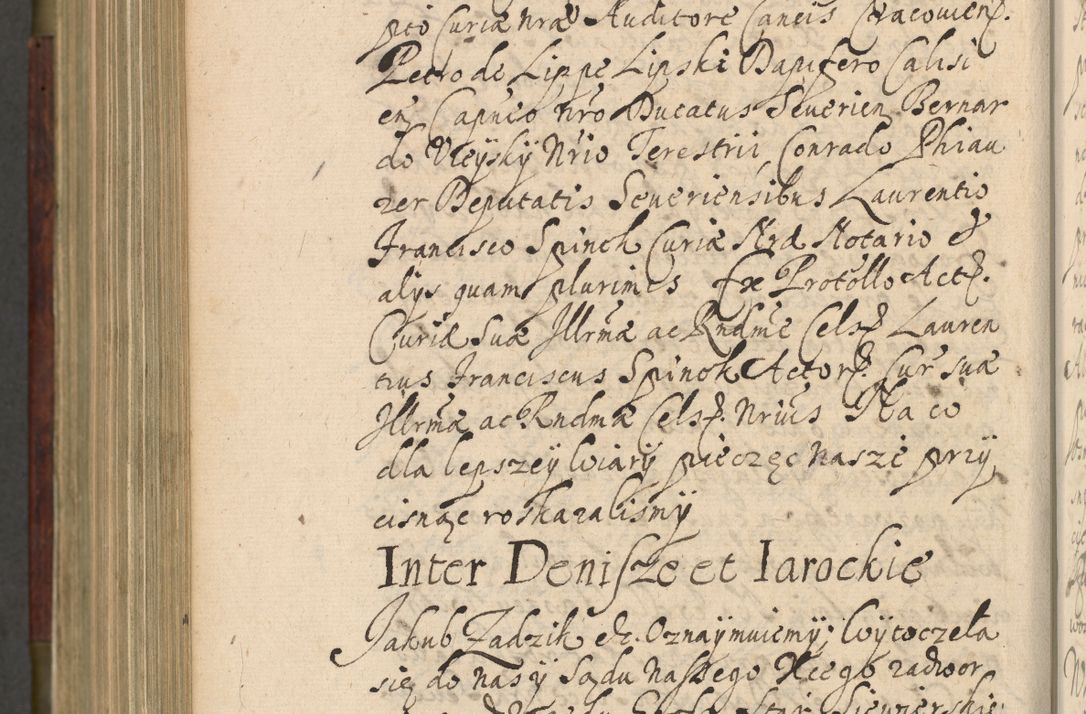 pto Curiæ nræ Auditore Cancis Cracovien.
Petro de Lippe Lipski Dapifero Calisi
en Capneo nro Ducatus Severien Bernar
do Nrio Terestrii Conrado Phiau
zer Deputatis Severiensibus Laurentio
Francisco Spinek Curiæ Nræ Notario &
alys quam plurimis Ex Protollo Act.
Curiæ Suæ Illrmæ ac Rndme Cels. Lauren
tius Franciscus Spinek Actor. Cur suæ
Illrmæ ac Rndmæ Cels. Nrius Na co
dla lepszeÿ wiarÿ pieczęc nasze przÿ
cisnąc roskazalismÿ
Inter Denisze et Iarockie
Jakub Zadzik etz. Oznaÿmuiemÿ; Wÿtoczela
się do nasÿ Sądu naszego zadwor